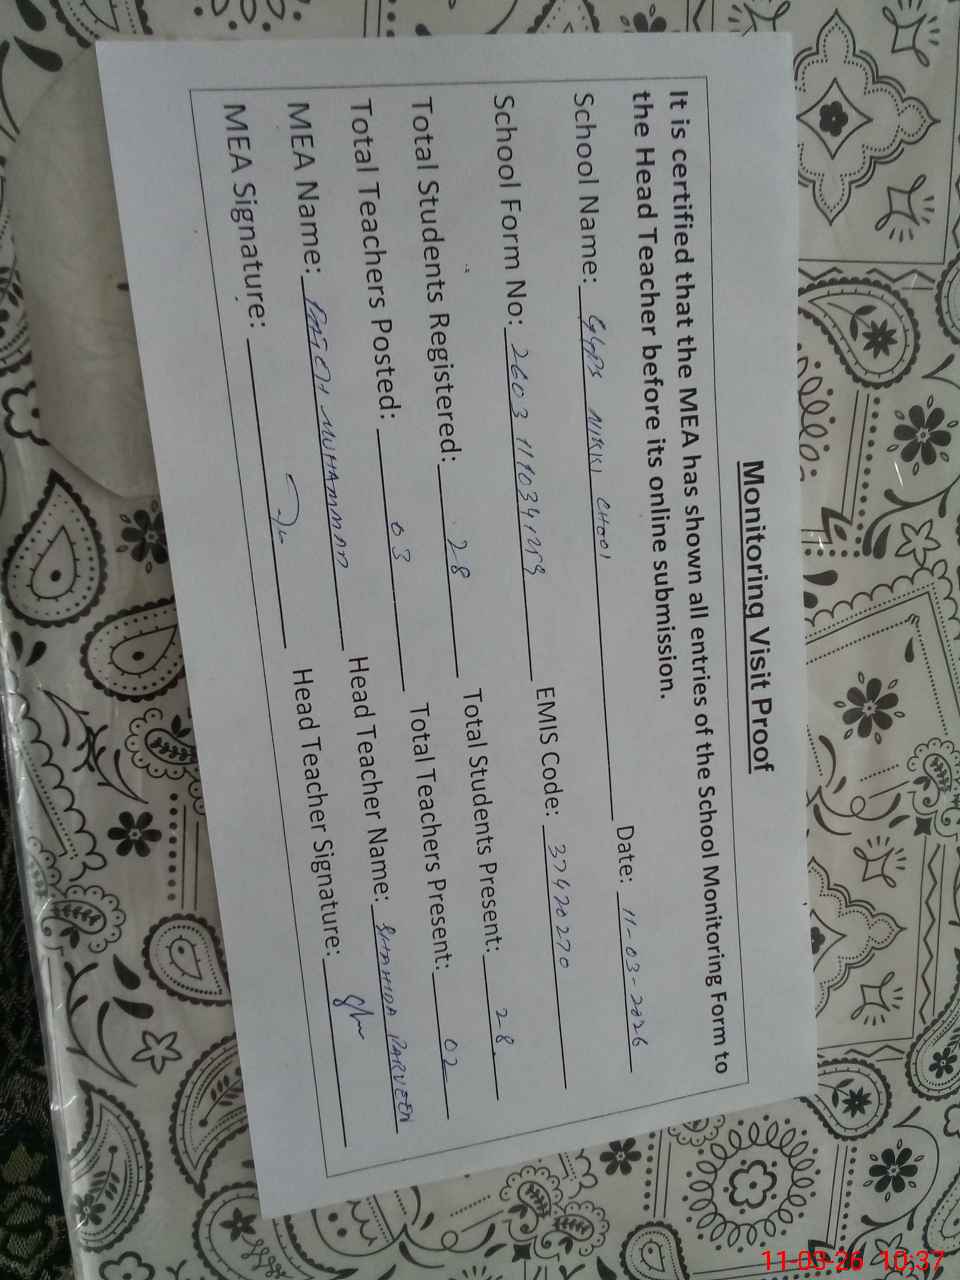 Monitoring Visit Proof
It is certified that the MEA has shown all entries of the School Monitoring Form to
the Head Teacher before its online submission.
School Name: GGPS NIKKI CHOOI Date: 11-03-2026
School Form No: 2603 EMIS Code: 37420270
Total Students Registered: 28 Total Students Present: 28
Total Teachers Posted: 03 Total Teachers Present: 02
MEA Name: MUHAMMAD Head Teacher Name: PARVEEN
MEA Signature: Head Teacher Signature:
11-03-26 10:37